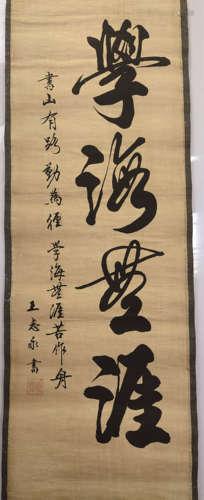 學海無涯
書山有路勤為徑 學海無涯苦作舟
王志永書